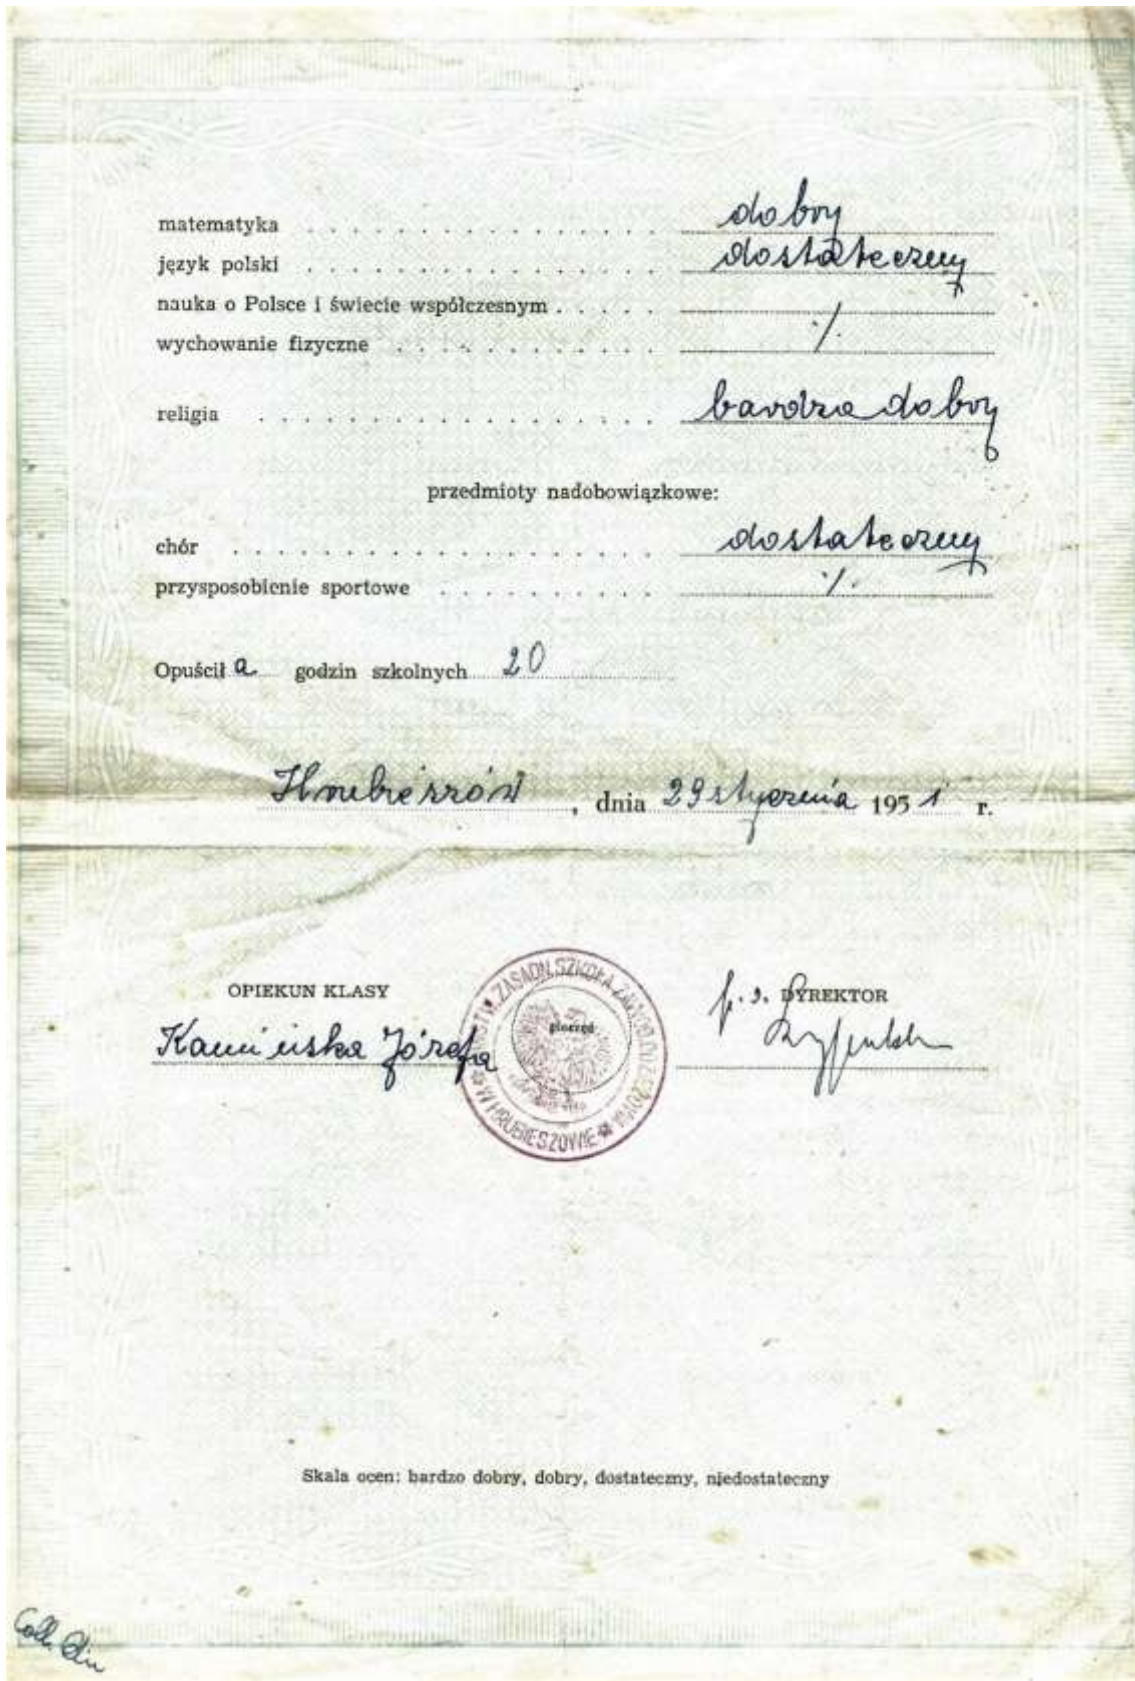 matematyka . . . . . . . . . . . . . . . . dobry
język polski . . . . . . . . . . . . . . . . dostateczny
nauka o Polsce i świecie współczesnym . . . . .
wychowanie fizyczne . . . . . . . . . . . . ./.
religia . . . . . . . . . . . . . . . . . . bardzo dobry
przedmioty nadobowiązkowe:
chór . . . . . . . . . . . . . . . . . . . dostateczny
przysposobienie sportowe . . . . . . . . . . ./.
Opuścił a godzin szkolnych 20
Hrubieszów, dnia 29 stycznia 1951 r.
OPIEKUN KLASY
p.o. DYREKTOR
Kamińska Józefa
ZASADN. SZKOŁA
W HRUBIESZOWIE
pieczęć
Skala ocen: bardzo dobry, dobry, dostateczny, niedostateczny